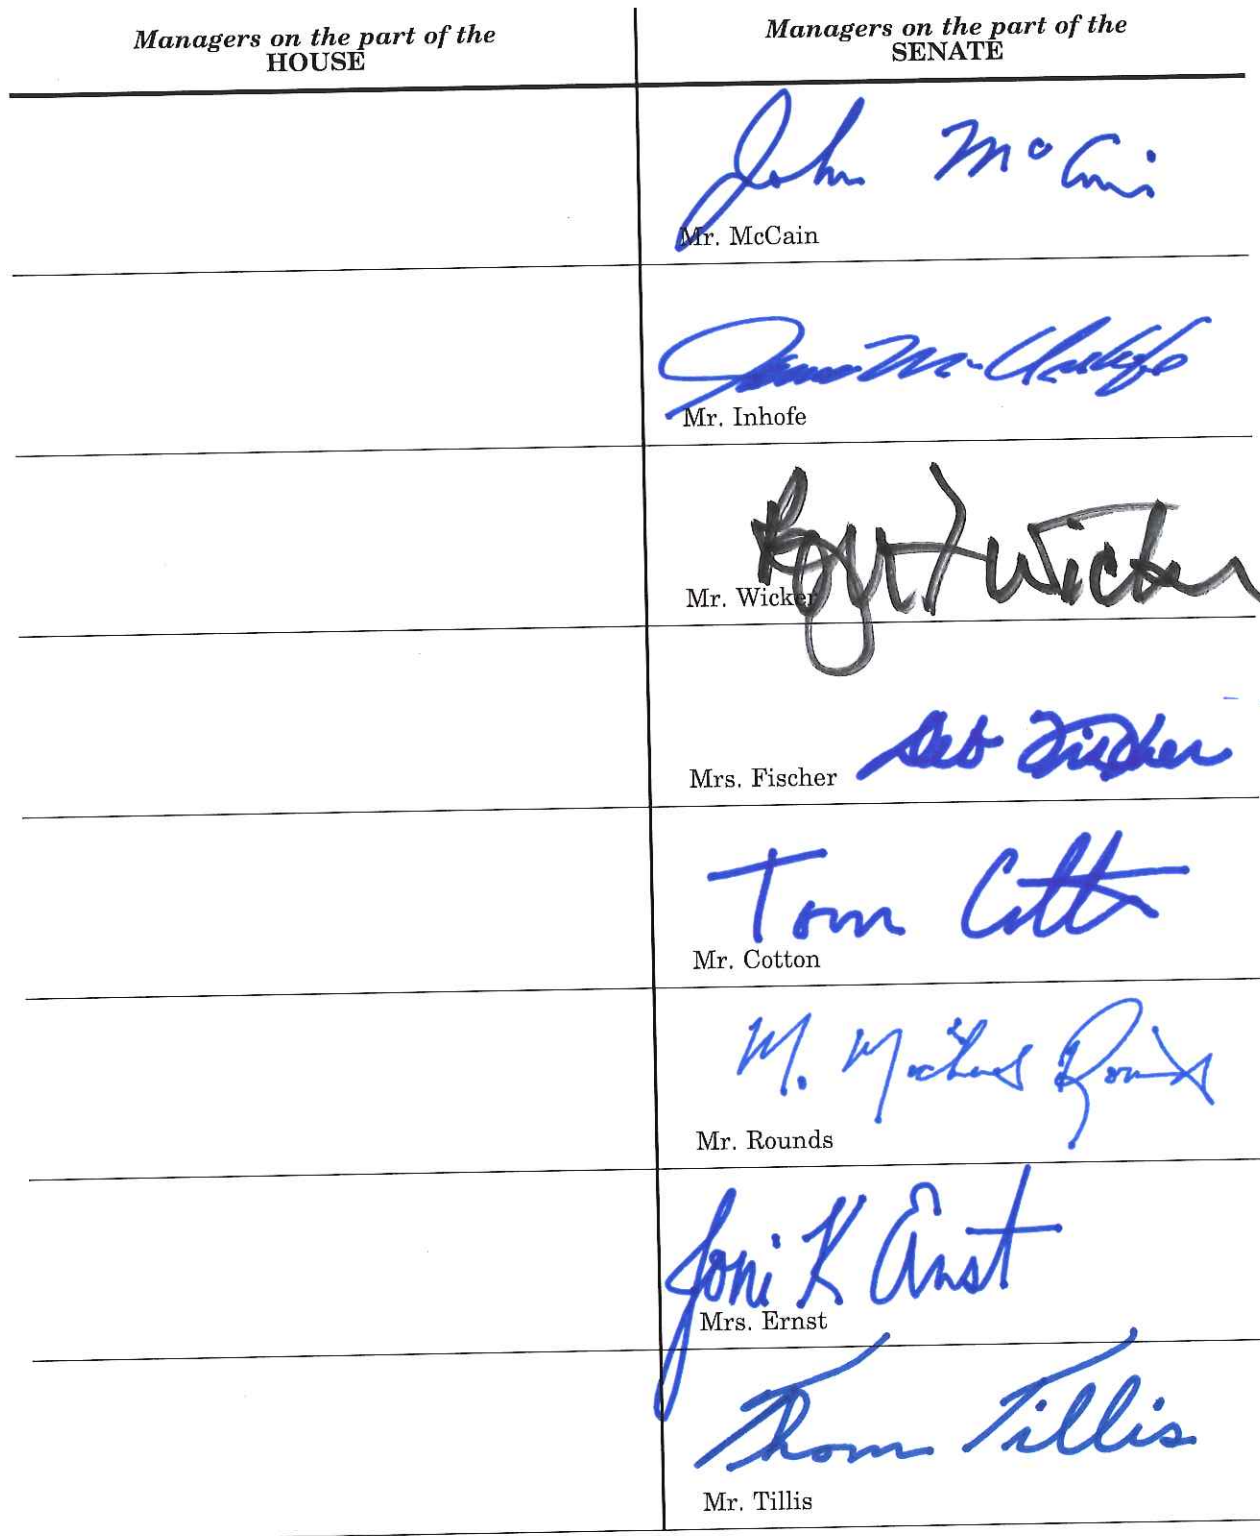 Managers on the part of the
HOUSE
Managers on the part of the
SENATE
John McCain
Mr. McCain
James M. Inhofe
Mr. Inhofe
Roger F Wicker
Mr. Wicker
Mrs. Fischer Deb Fischer
Tom Cotton
Mr. Cotton
M. Michael Rounds
Mr. Rounds
Joni K Ernst
Mrs. Ernst
Thom Tillis
Mr. Tillis